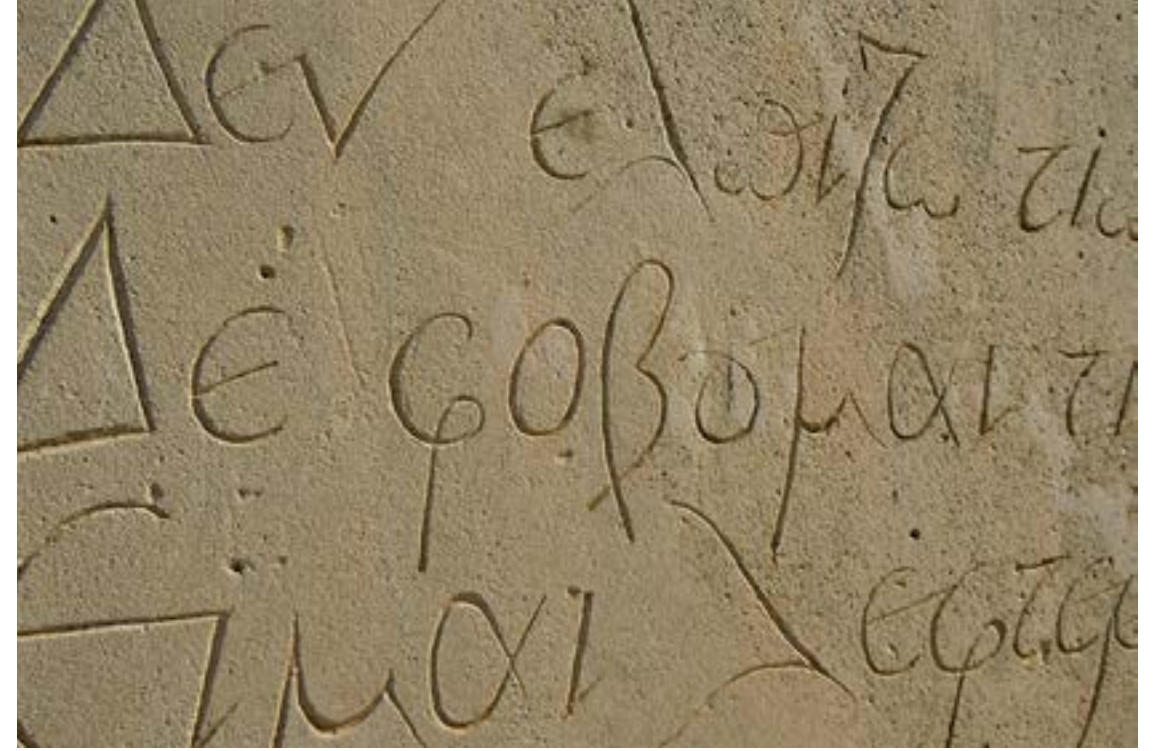 Δεν ελπιζω τι
Δε φοβουμαι τι
Ειμαι λεφτερ